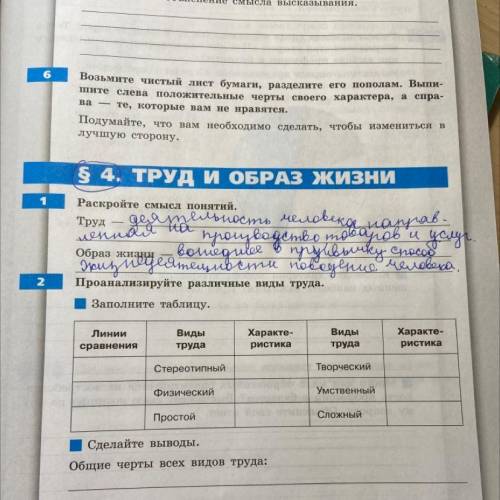 снение смысла высказывания.
6
Возьмите чистый лист бумаги, разделите его пополам. Выпи-
шите слева положительные черты своего характера, а спра-
ва — те, которые вам не нравятся.
Подумайте, что вам необходимо сделать, чтобы измениться в
лучшую сторону.
§ 4. ТРУД И ОБРАЗ ЖИЗНИ
1
Раскройте смысл понятий.
Труд — деятельность человека, направ-
ленная на производство товаров и услуг.
Образ жизни вошедшее в привычку способ
жизнедеятельности поведение человека.
2
Проанализируйте различные виды труда.
Заполните таблицу.
Линии сравнения Виды труда Характе-ристика Виды труда Характе-ристика
Стереотипный Творческий
Физический Умственный
Простой Сложный
Сделайте выводы.
Общие черты всех видов труда: